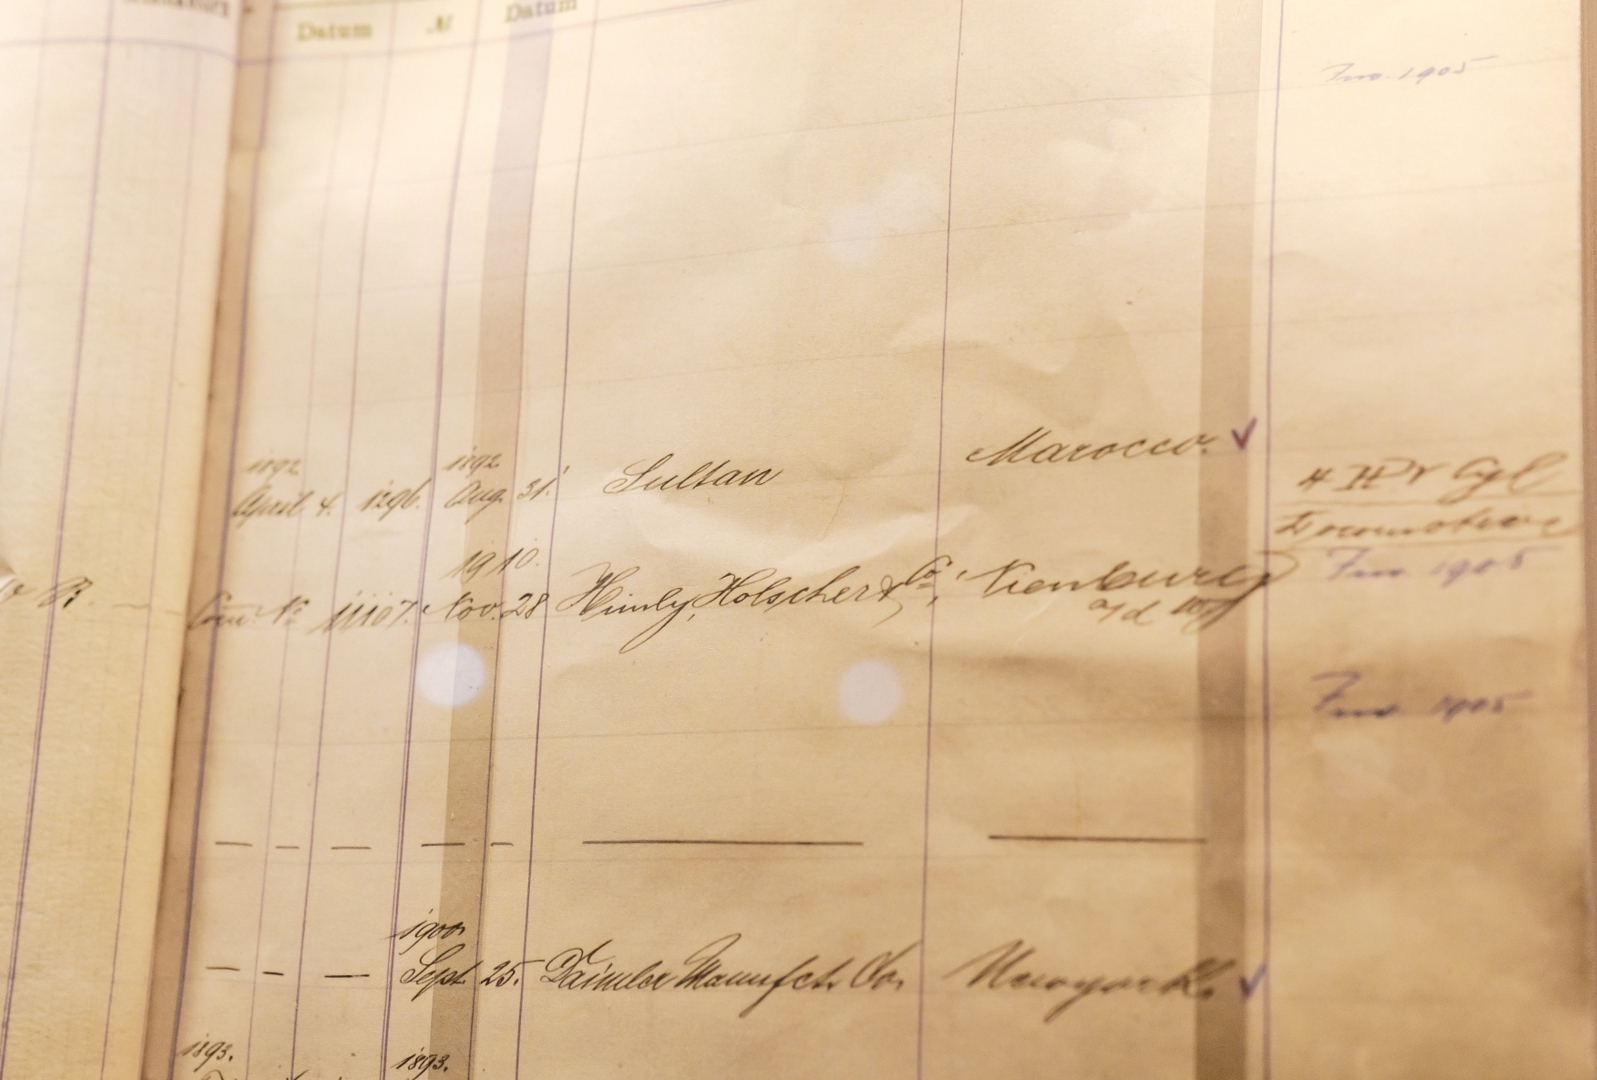 Datum № Datum
Inv. 1905
1892 1892
April 4. 1296. Aug. 31. Sultan Marocco.
4 HP Cyl
Locomotive
1910.
Com. № 11107. Nov. 28 Himly, Holscher & Co., Nienburg
a/d W
Inv. 1905
Inv. 1905
1900
Sept. 25. Daimler Manufct. Co. Newyork.
1893. 1893.